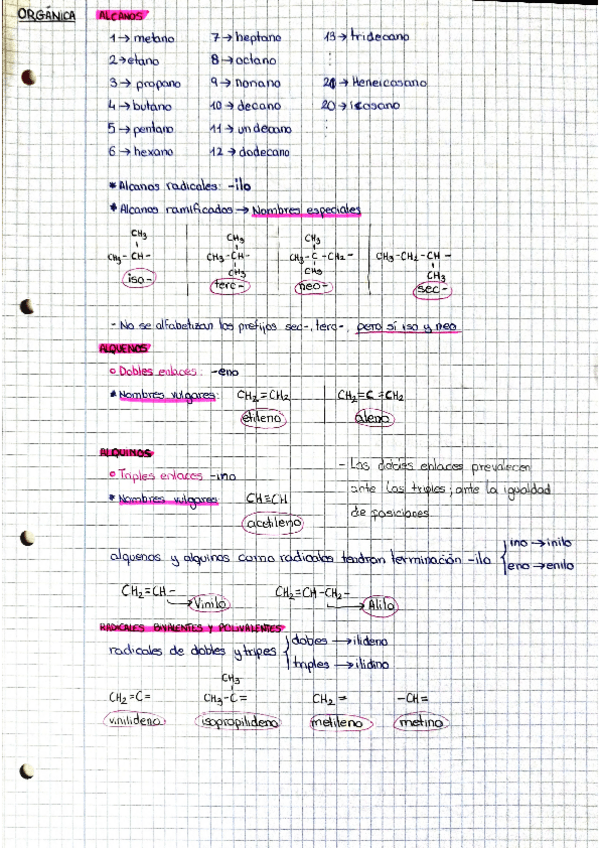 ORGÁNICA
ALCANOS
1→ metano 7→ heptano 13→ tridecano
2→ etano 8→ octano ⋮
3→ propano 9→ nonano 21→ Heneicosano
4→ butano 10→ decano 20→ icosano
5→ pentano 11→ undecano ⋮
6→ hexano 12→ dodecano
* Alcanos radicales: -ilo
* Alcanos ramificados → Nombres especiales
CH3 CH3 CH3
CH3-CH- CH3-CH- CH3-C-CH2- CH3-CH2-CH-
CH3 CH3 CH3
iso- terc- neo- sec-
- No se alfabetizan los prefijos sec-, terc-, pero sí iso y neo
ALQUENOS
° Dobles enlaces: -eno
* Nombres vulgares: CH2=CH2 CH2=C=CH2
etileno aleno
ALQUINOS
° Triples enlaces -ino
* Nombres vulgares CH≡CH
acetileno
- Los dobles enlaces prevalecen
ante los triples; ante la igualdad
de posiciones
alquenos y alquinos como radicales tendran terminación -ilo { ino → inilo
eno → enilo
CH2=CH- CH2=CH-CH2-
→ Vinilo → Alilo
RADICALES BIVALENTES Y POLIVALENTES
radicales de dobles y tripes { dobles → ilideno
triples → ilidino
CH3
CH2=C= CH3-C= CH2= -CH=
vinilideno isopropilideno metileno metino